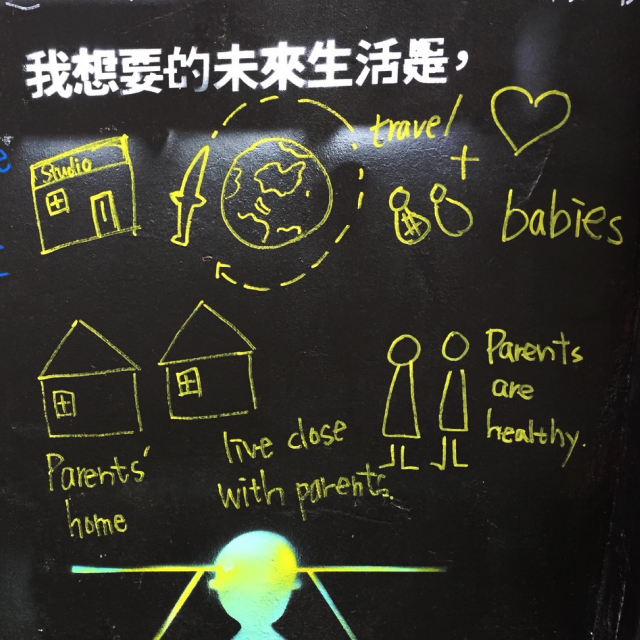 我想要的未來生活是，
Studio
travel
+
babies
Parents'
home
live close
with parents.
Parents
are
healthy.